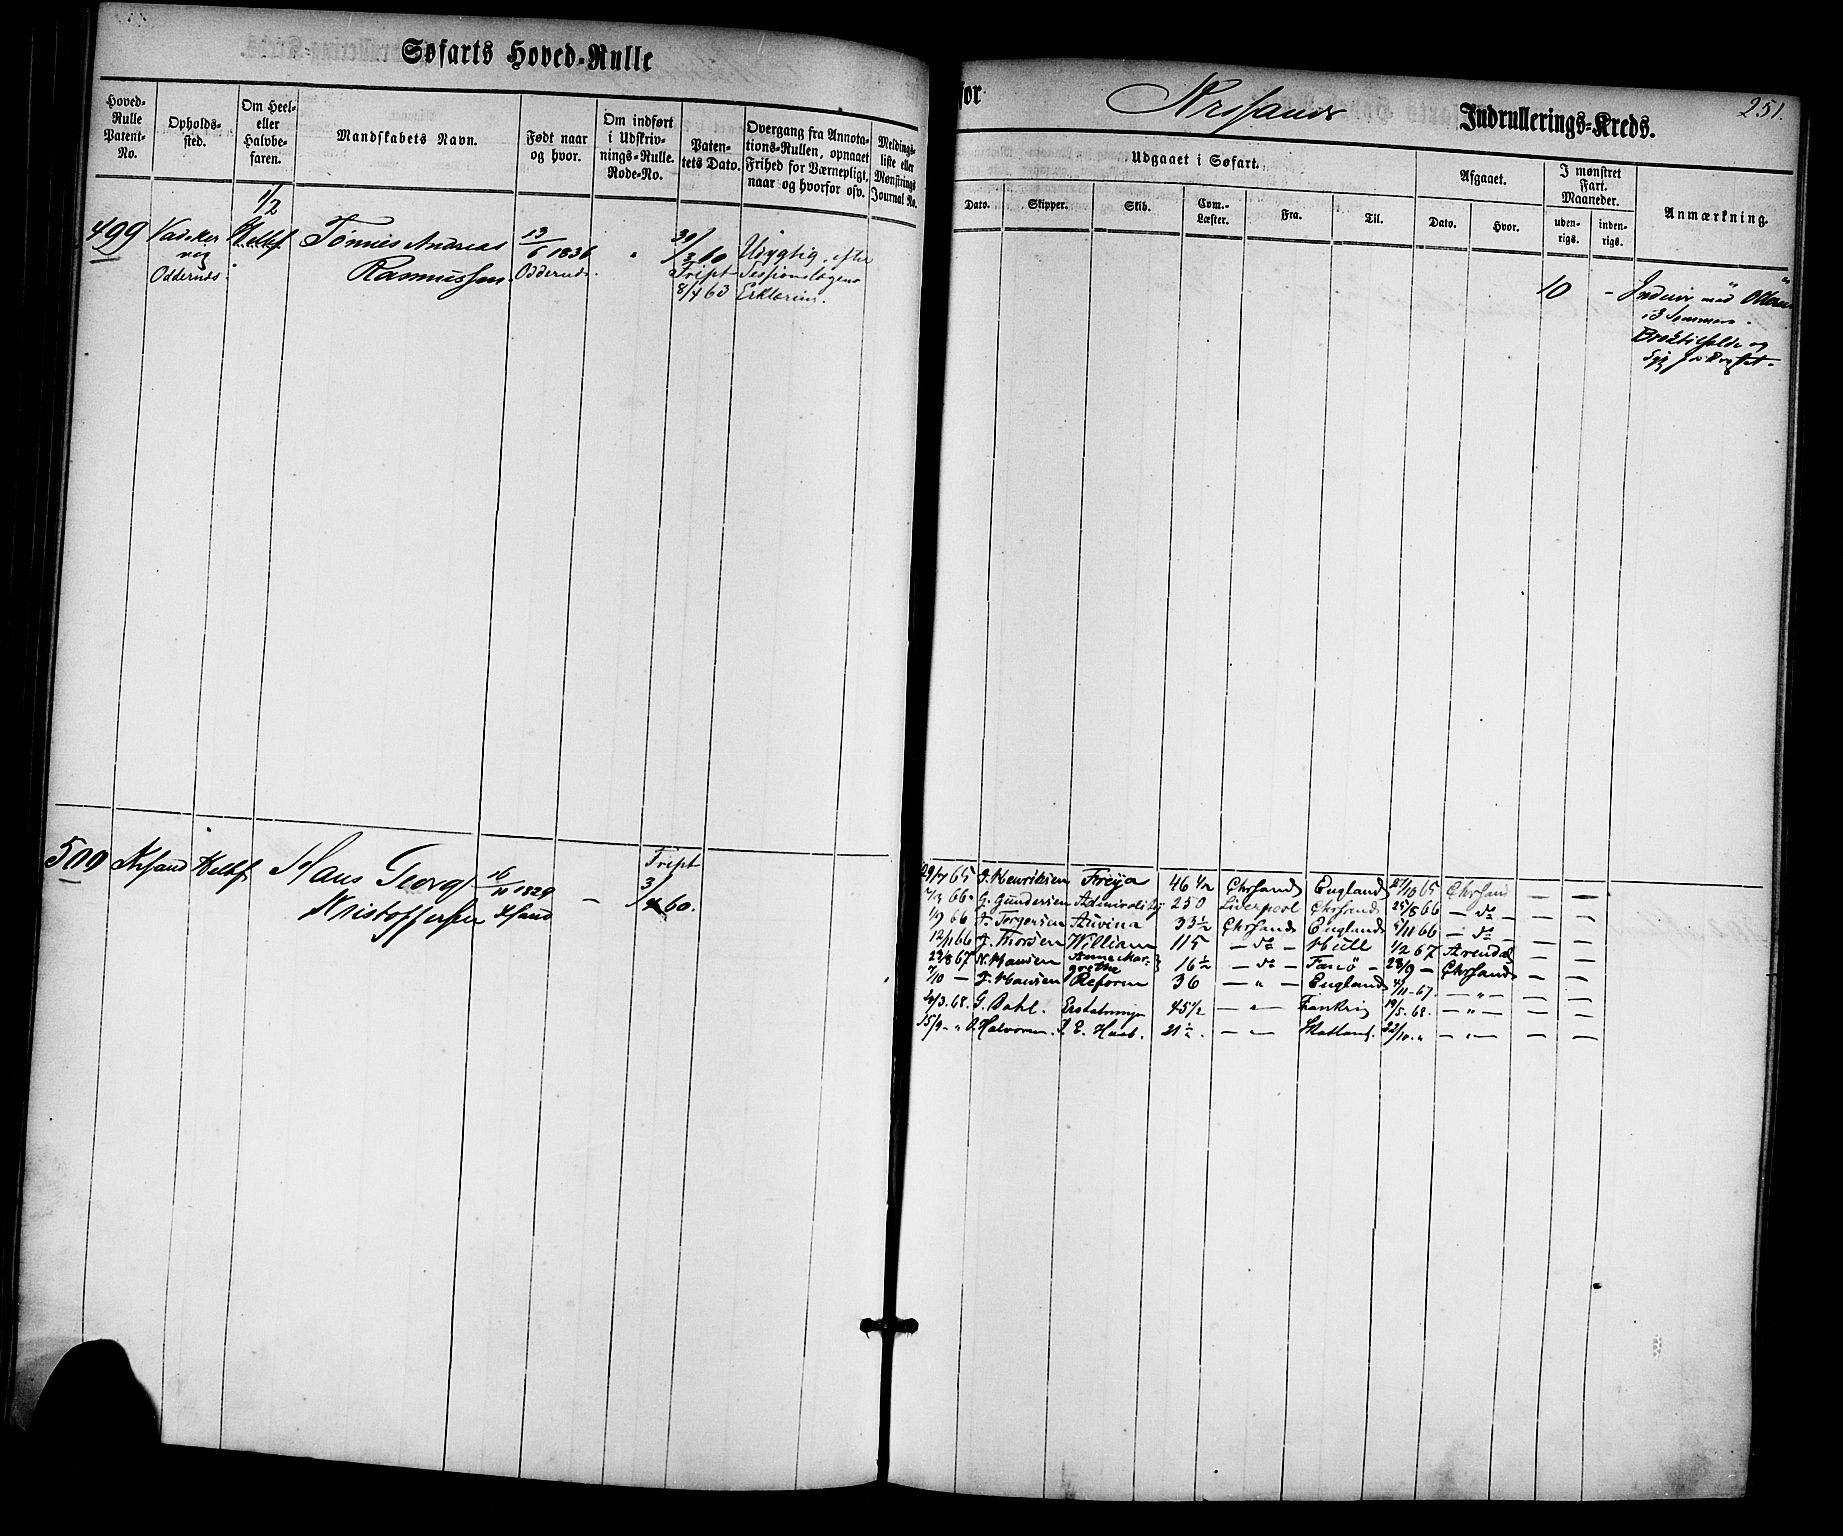 Søfarts Hoved-Rulle
for Krisands Indrullerings-Kreds.
251.
Hoved-Rulle Patent-No.
Opholds-sted.
Om Heel- eller Halvbe-faren.
Mandskabets Navn.
Født naar og hvor.
Om indført i Udskriv-nings-Rulle. Rode-No.
Paten-tets Dato.
Overgang fra Annota-tions-Rullen, opnaaet Frihed for Værnepligt, naar og hvorfor osv.
Meldings-liste eller Mønstrings Journal No.
Udgaaet i Søfart.
Dato.
Skipper.
Skib.
Com.-Læster.
Fra.
Til.
Afgaaet.
Dato.
Hvor.
I mønstret Fart. Maaneder.
uden-rigs.
inden-rigs.
Anmærkning.
1/2
499 Helbf. Tønnes Andreas 13/6 1836 " 30/3 60 Uigytig. efter
Rasmussen. Oddernes. Fript Sessionslagens
Oddernæs. 8/4 63 Erklæring.
10 -
500 Krsand Helbf Hans Georg 16/10 1829 - Fript
Kristoffersen Krsand 3/4 60.
29/7 65 J. Henriksen Freya 46 1/2 Chrsand England 27/10 65 Chrsand — —
7/3 66 G. Gundersen 250 Liverpool Chrsand 25/8 66 — do — — —
1/9 66 F. Torgersen Alvina 33 1/2 Chrsand England 5/11 66 — do — — —
12/11 66 J. Thorsen William 115 — do — Hull 1/2 67 Arendal — —
29/8 67 N. Hansen Anne Mar-grethe 16 1/2 — do — Fanö — 28/9 — Chrsand — —
7/10 — F. Hansen Reform 36 — " — England 4/11-67. — " — — —
4/3.68. G. Dahl. Erstatningen 45 1/2 — " — Frankrig 19/5.68. — " — — —
15/9-" O. Halvorsen. I. E. Haab. 21 1/2. — " — Skotland. 22/10." — " — — —